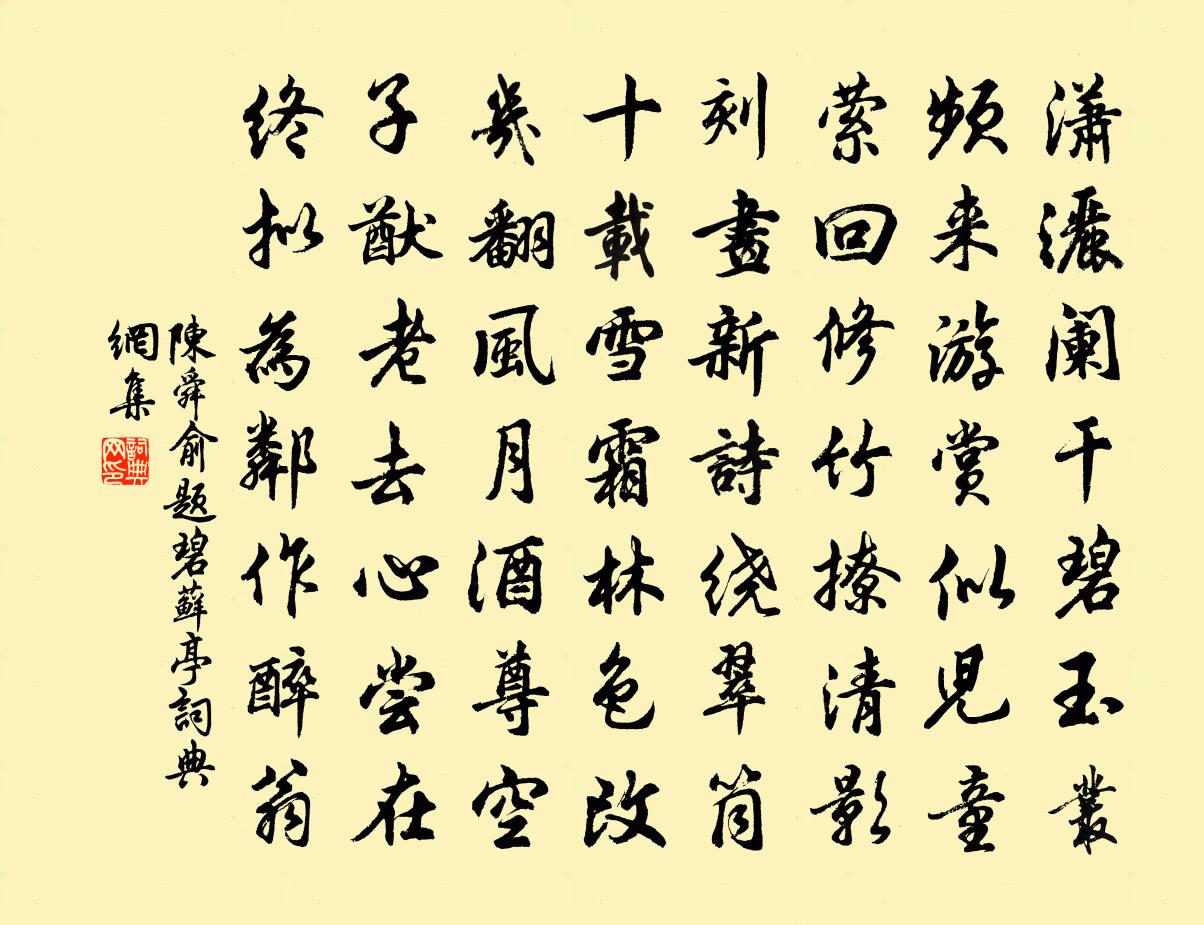 瀟灑阑干碧玉叢
频来游赏似児童
萦回修竹撩清影
刻畫新詩绕翠筒
十載雪霜林色改
幾翻風月酒尊空
子猷老去心尝在
终拟為鄰作醉翁
陳舜俞题碧蘚亭詞典
網集
詞典
网印